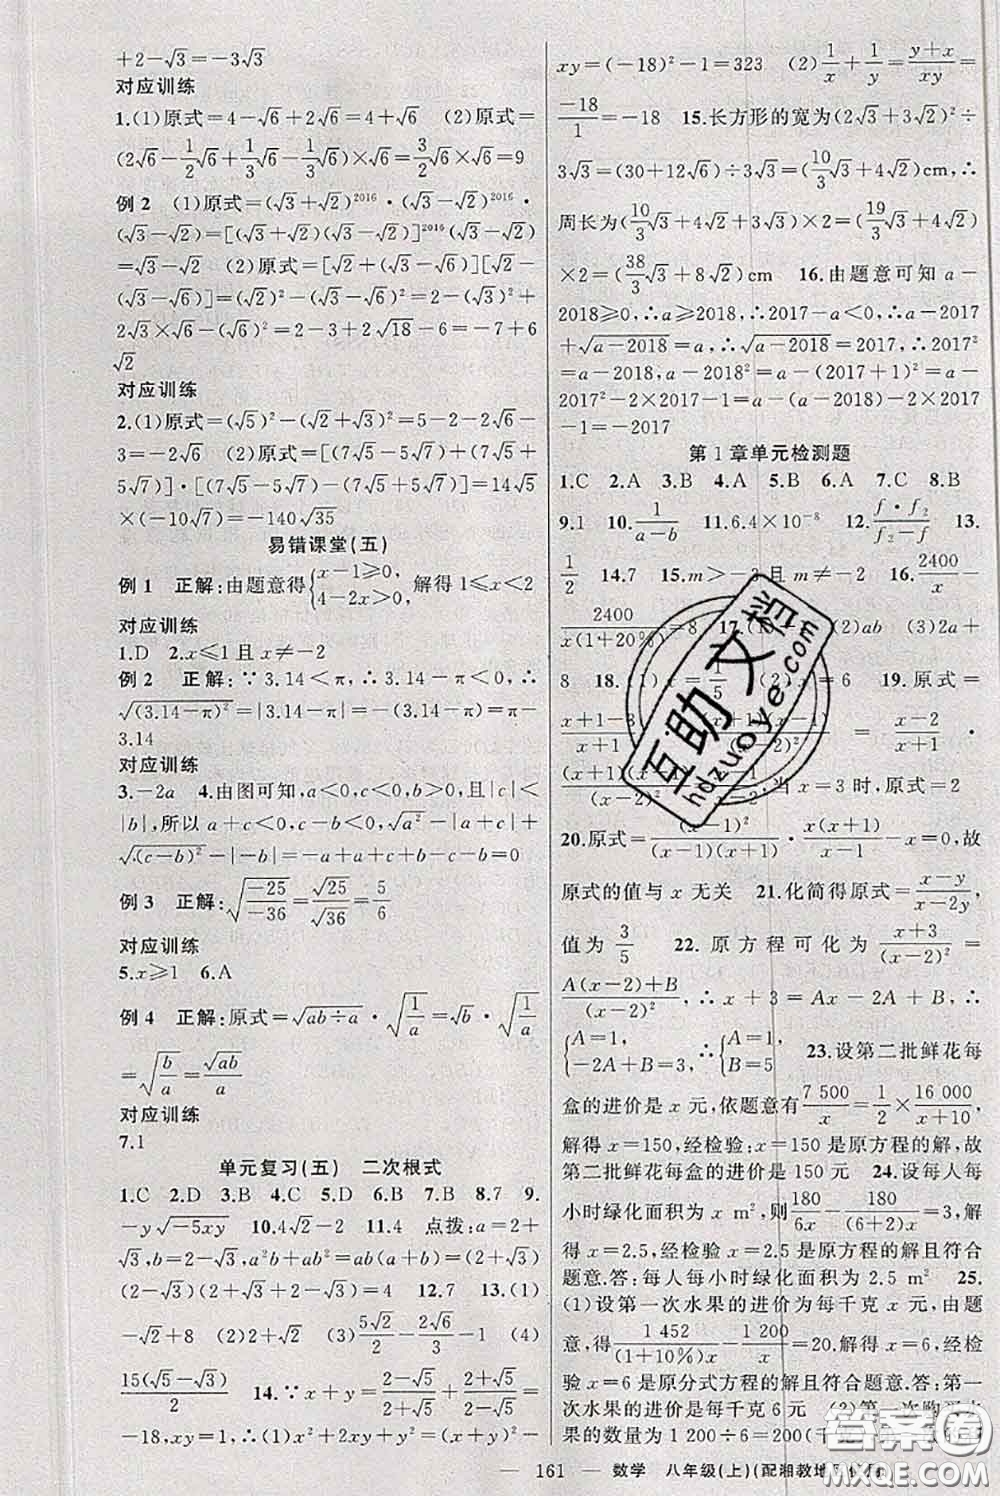 +2-√3=-3√3
对应训练
1.(1)原式=4-√6+2√6=4+√6 (2)原式=
(2√6-1/2√6+1/3√6-1/3√6)×√6=3/2√6×√6=9
例2 (1)原式=(√3+√2)²⁰¹⁶·(√3-√2)²⁰¹⁶·
(√3-√2)=[(√3+√2)(√3-√2)]²⁰¹⁶(√3-√2)=
√3-√2 (2)原式=[√2+(√3-√6)][√2-
(√3-√6)]=(√2)²-(√3-√6)²=2-(√3)²+
2√3×√6-(√6)²=2-3+2√18-6=-7+6
√2
对应训练
2.(1)原式=(√5)²-(√2+√3)²=5-2-2√6
-3=-2√6 (2)原式=[(7√5-5√7)+(7√5+
5√7)]·[(7√5-5√7)-(7√5+5√7)]=14√5
×(-10√7)=-140√35
易错课堂(五)
例1 正解:由题意得{x-1≥0, 4-2x>0, 解得1≤x<2
对应训练
1.D 2.x≤1且x≠-2
例2 正解:∵3.14<π,∴3.14-π<0,∴
√(3.14-π)²=|3.14-π|=-(3.14-π)=π-
3.14
对应训练
3.-2a 4.由图可知,a<0,c<0,b>0,且|c|<
|b|,所以a+c<0,c-b<0,√a²-|a+c|+
√(c-b)²-|-b|=-a+a+c-c+b-b=0
例3 正解:√(-25/-36)=√25/√36=5/6
对应训练
5.x≥1 6.A
例4 正解:原式=√(ab÷a)·√(1/a)=√b·√(1/a)
=√(b/a)=√ab/a
对应训练
7.1
单元复习(五) 二次根式
1.C 2.D 3.B 4.C 5.D 6.B 7.B 8.7 9.
-y√(-5xy) 10.4√2-2 11.4 点拨:a=2+
√3,b=2-√3,a²b+ab²=ab(a+b)=(2+√3)
(2-√3)(2+√3+2-√3)=4 12.7 13.(1)
-√2+8 (2)2√2 (3)5√2/2-2√6/3-1 (4)
15(√5-√3)/2 14.∵x+y=(2-√5)/(2+√5)+(2+√5)/(2-√5)=
-18,xy=1,∴(1)x²+2xy+y²=(x+y)²-
xy=(-18)²-1=323 (2)1/x+1/y=(y+x)/xy=
-18/1=-18 15.长方形的宽为(2√3+3√2)÷
3√3=(30+12√6)÷3√3=(10/3√3+4√2)cm,∴
周长为(10/3√3+4√2+3√3)×2=(19/3√3+4√2)
×2=(38/3√3+8√2)cm 16.由题意可知a-
2018≥0,∴a≥2018,∴2017-a<0,∴a-2017
+√(a-2018)=a,∴√(a-2018)=2017,∴2017²
=a-2018,∴2017²-a=a-(2017+1)²=
2017²-2×2017-1=a-(a-2018)-2×2017
-1=-2017
第1章单元检测题
1.C 2.A 3.B 4.A 5.B 6.A 7.C 8.B
9.1 10.1/(a-b) 11.6.4×10⁻⁸ 12.f·f₂/(f₂-f) 13.
1/2 14.7 15.m>-3且m≠-2 16.2400/x-
2400/x(1+20%)=8 17. (2)ab (3)2a+
8 18.(1)x=1/5 (2)x=6 19.原式=
当x=3时,原式=2
20.原式=(x-1)²/(x-1)(x+1)·x(x+1)/(x-1)-x=0,故
原式的值与x无关 21.化简得原式=(x-y)/(x-2y),
值为3/5 22.原方程可化为(x+3)/(x-2)²=
(A(x-2)+B)/(x-2)²,∴x+3=Ax-2A+B,∴
{A=1, -2A+B=3,∴{A=1, B=5 23.设第二批鲜花每
盒的进价是x元,依题意有7 500/x=1/2×16 000/(x+10),
解得x=150,经检验:x=150是原方程的解,故
第二批鲜花每盒的进价是150元 24.设每人每
小时绿化面积为x m²,则180/6x-180/(6+2)x=3,解
得x=2.5,经检验x=2.5是原方程的解且符合
题意.答:每人每小时绿化面积为2.5 m² 25.
(1)设第一次水果的进价为每千克x元,由题
意,得1 452/(1+10%)x-1 200/x=20.解得x=6,经检
验x=6是原分式方程的解且符合题意.答:第一
次水果的进价是每千克6元 (2)第一次购买水
果的数量为1 200÷6=200(千克)
— 161 — 数学 八年级(上)(配湘教地
互助文档
hdzuoye.com
答案圈